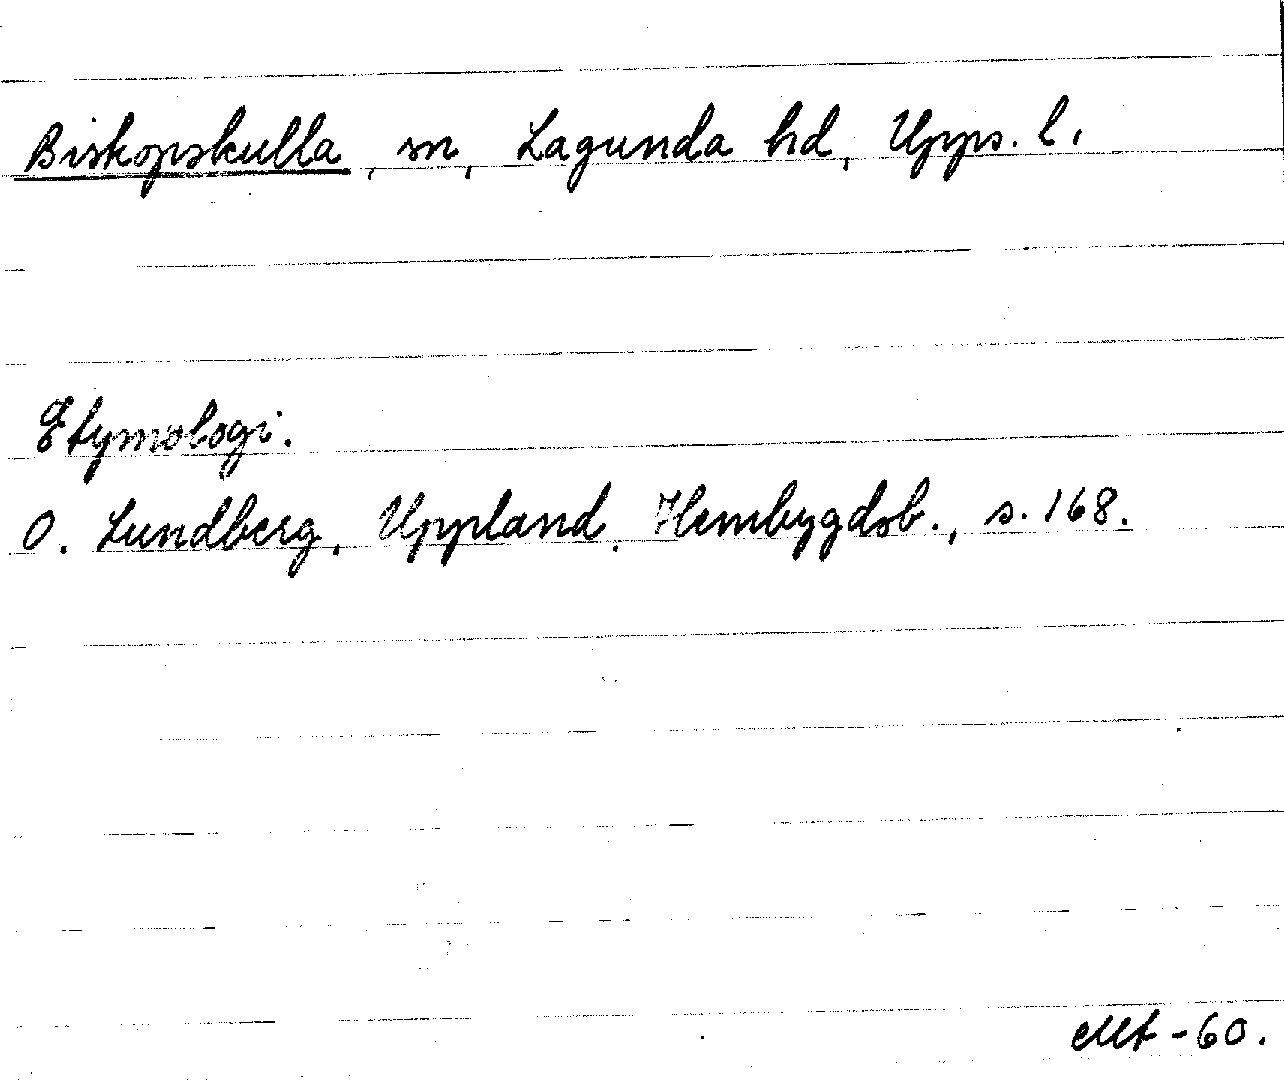 Biskopskulla, sn, Lagunda hd, Upps. l.
Etymologi.
O. Lundberg, Uppland. Hembygdsb., s. 168.
-60.